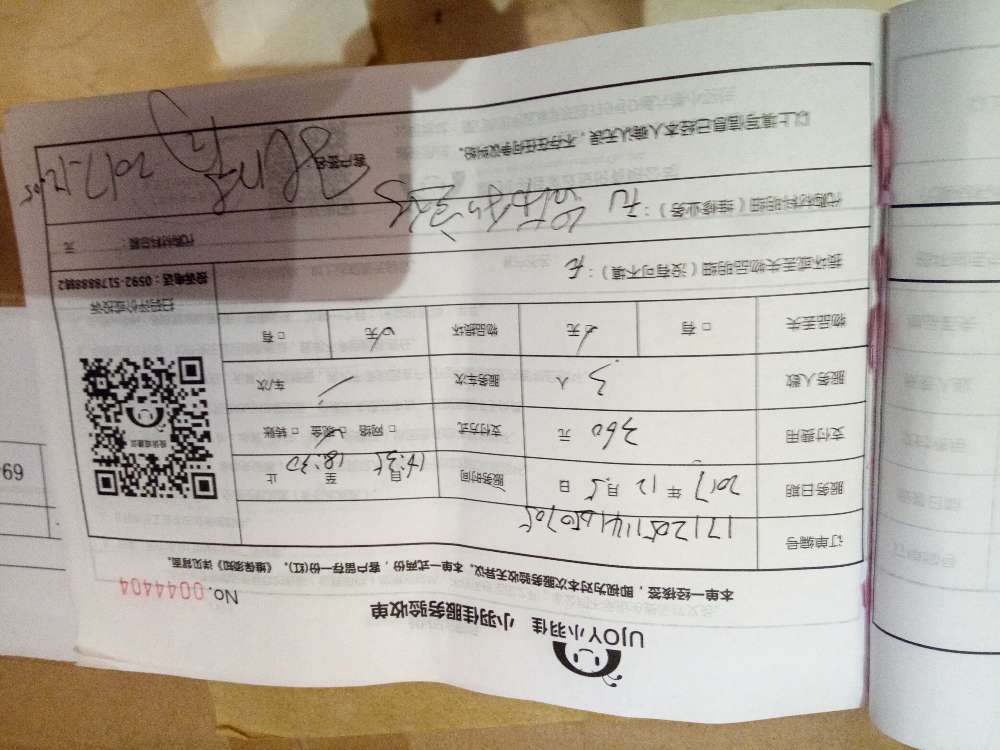 UJOY小羽佳 小羽佳服务验收单
No.0044404
本单一经核签，即视为对本次服务验收无异议。本单一式两份，客户留存一份(红)。《维保须知》详见背面。
订单编号
服务日期 2017 年 12 月 5 日 服务时间 自 至 18:30 止
支付费用 360 元 支付方式 □网络 □现金 □转账
服务人数 3 人 服务车次 / 车/次
投诉或建议
扫码评价或投诉
投诉电话：0592-5178888转2
物品丢失 □有 □无 物品损坏 □无 □有
损坏或丢失物品明细（没有可不填）： 无
代购材料明细（维修业务）： 无
代购材料总额： 元
以上填写信息已经本人确认无误，不存在任何争议纠纷。
客户签名
2017-12-05
69